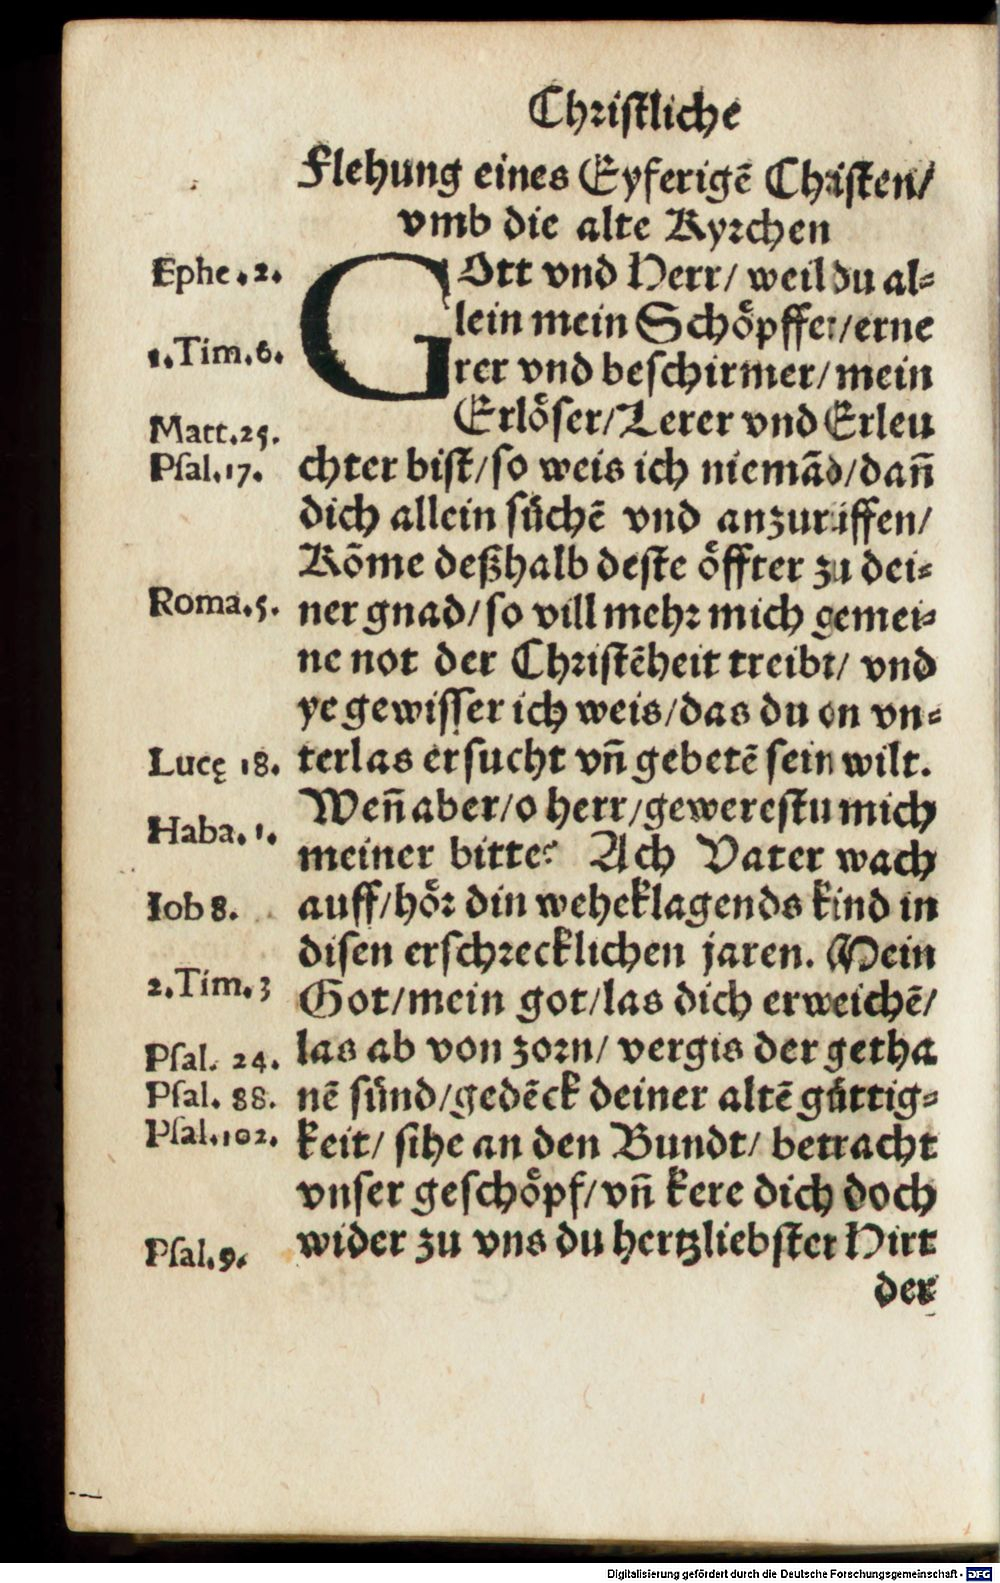 Christliche
Flehung eines Eyferigẽ Christen/
vmb die alte Kyrchen
Ephe.2.
GOtt vnd Herr/ weil du al⸗
lein mein Schöpffer/erne
1.Tim.6.
rer vnd beschirmer/mein
Erlöser/Lerer vnd Erleu
Matt.25.
Psal.17.
chter bist/so weis ich niemãd/dañ
dich allein süchẽ vnd anzurüffen/
Kõme deßhalb deste öffter zu dei⸗
Roma.5.
ner gnad/so vill mehr mich gemei⸗
ne not der Christẽheit treibt/ vnd
ye gewisser ich weis/das du on vn⸗
Lucę 18.
terlas ersucht vñ gebetẽ sein wilt.
Weñ aber/o herr/gewerestu mich
Haba. 1.
meiner bitte? Ach Vater wach
Iob 8.
auff/hör din weheklagends kind in
disen erschrecklichen jaren. Mein
2.Tim.3
Got/mein got/las dich erweichẽ/
las ab von zorn/ vergis der getha
Psal. 24.
Psal. 88.
nẽ sünd/gedẽck deiner altẽ güttig⸗
Psal.102.
keit/ sihe an den Bundt/ betracht
vnser geschöpf/vñ kere dich doch
Psal.9.
wider zu vns du hertzliebster Hirt
der
Digitalisierung gefördert durch die Deutsche Forschungsgemeinschaft - DFG